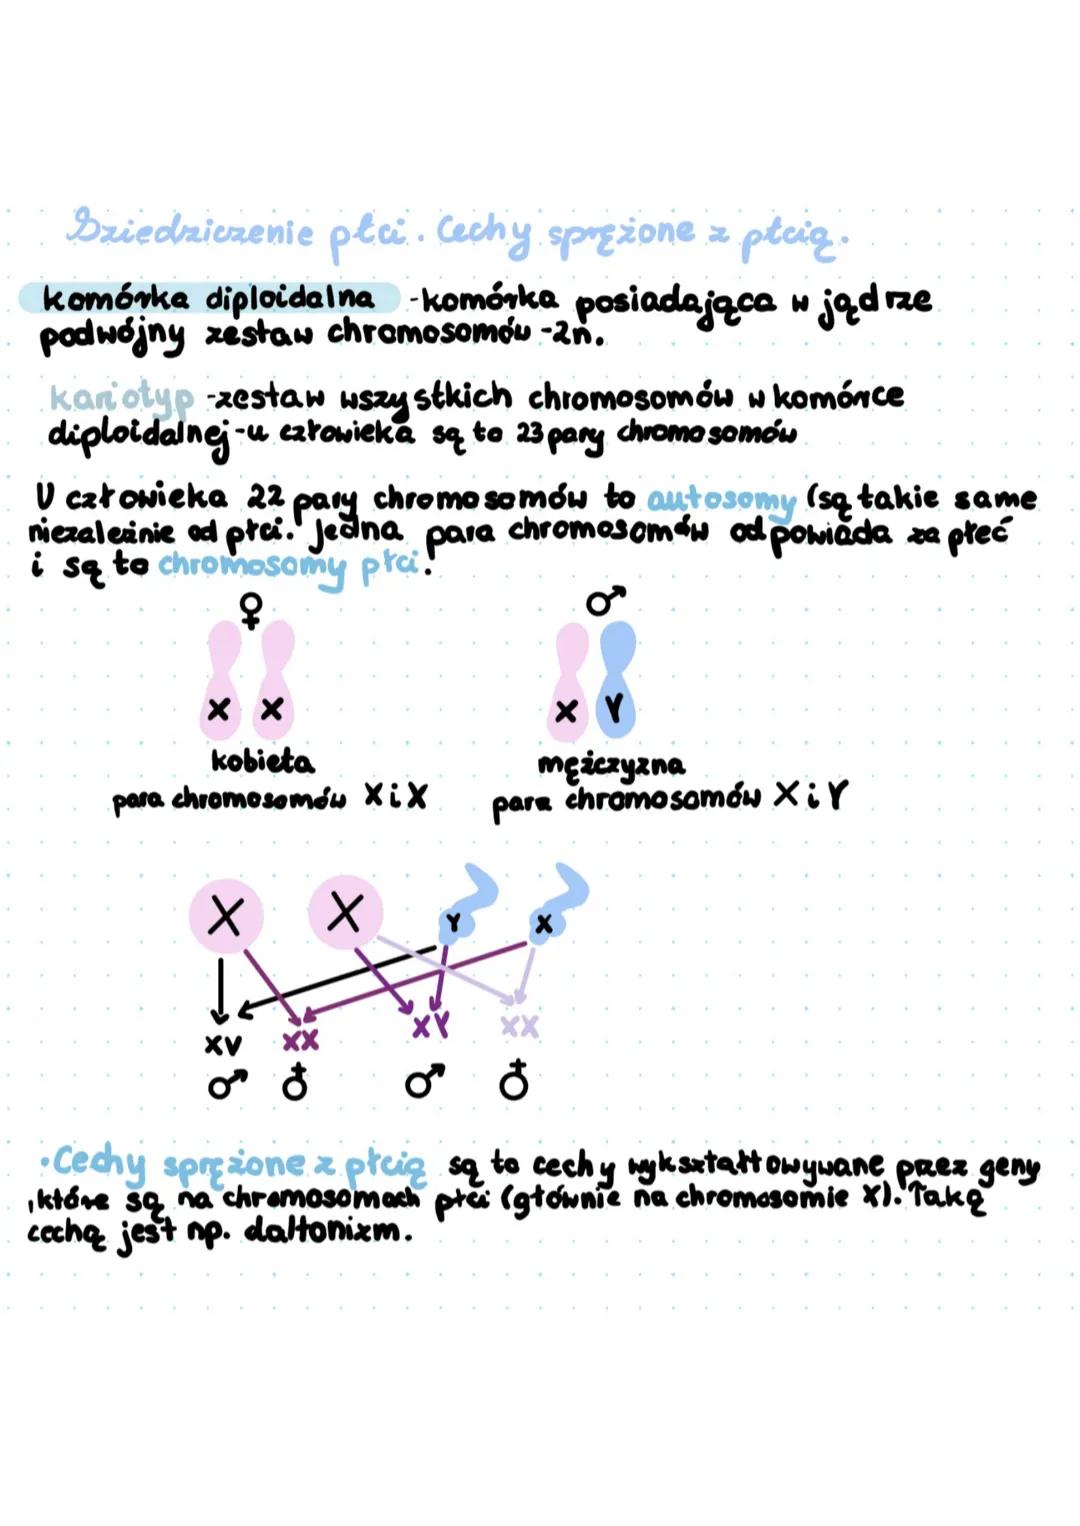 Dziedziczenie płci. Cechy sprzężone z płcią.
komórka diploidalna -komórka posiadająca w jądrze
podwójny zestaw chromosomów -2n.
kariotyp -zestaw wszystkich chromosomów w komórce
diploidalnej -u człowieka są to 23 pary chromosomów
U człowieka 22 pary chromosomów to autosomy (są takie same
niezależnie od płci. Jedna para chromosomów odpowiada za płeć
i są to chromosomy płci.
♀ ♂
X X X Y
kobieta mężczyzna
para chromosomów X i X para chromosomów X i Y
X X Y X
XY XX XY XX
♂ ♁ ♂ ♁
•Cechy sprzężone z płcią są to cechy wykształtowywane przez geny
,które są na chromosomach płci (głównie na chromosomie X). Taką
cechą jest np. daltonizm.